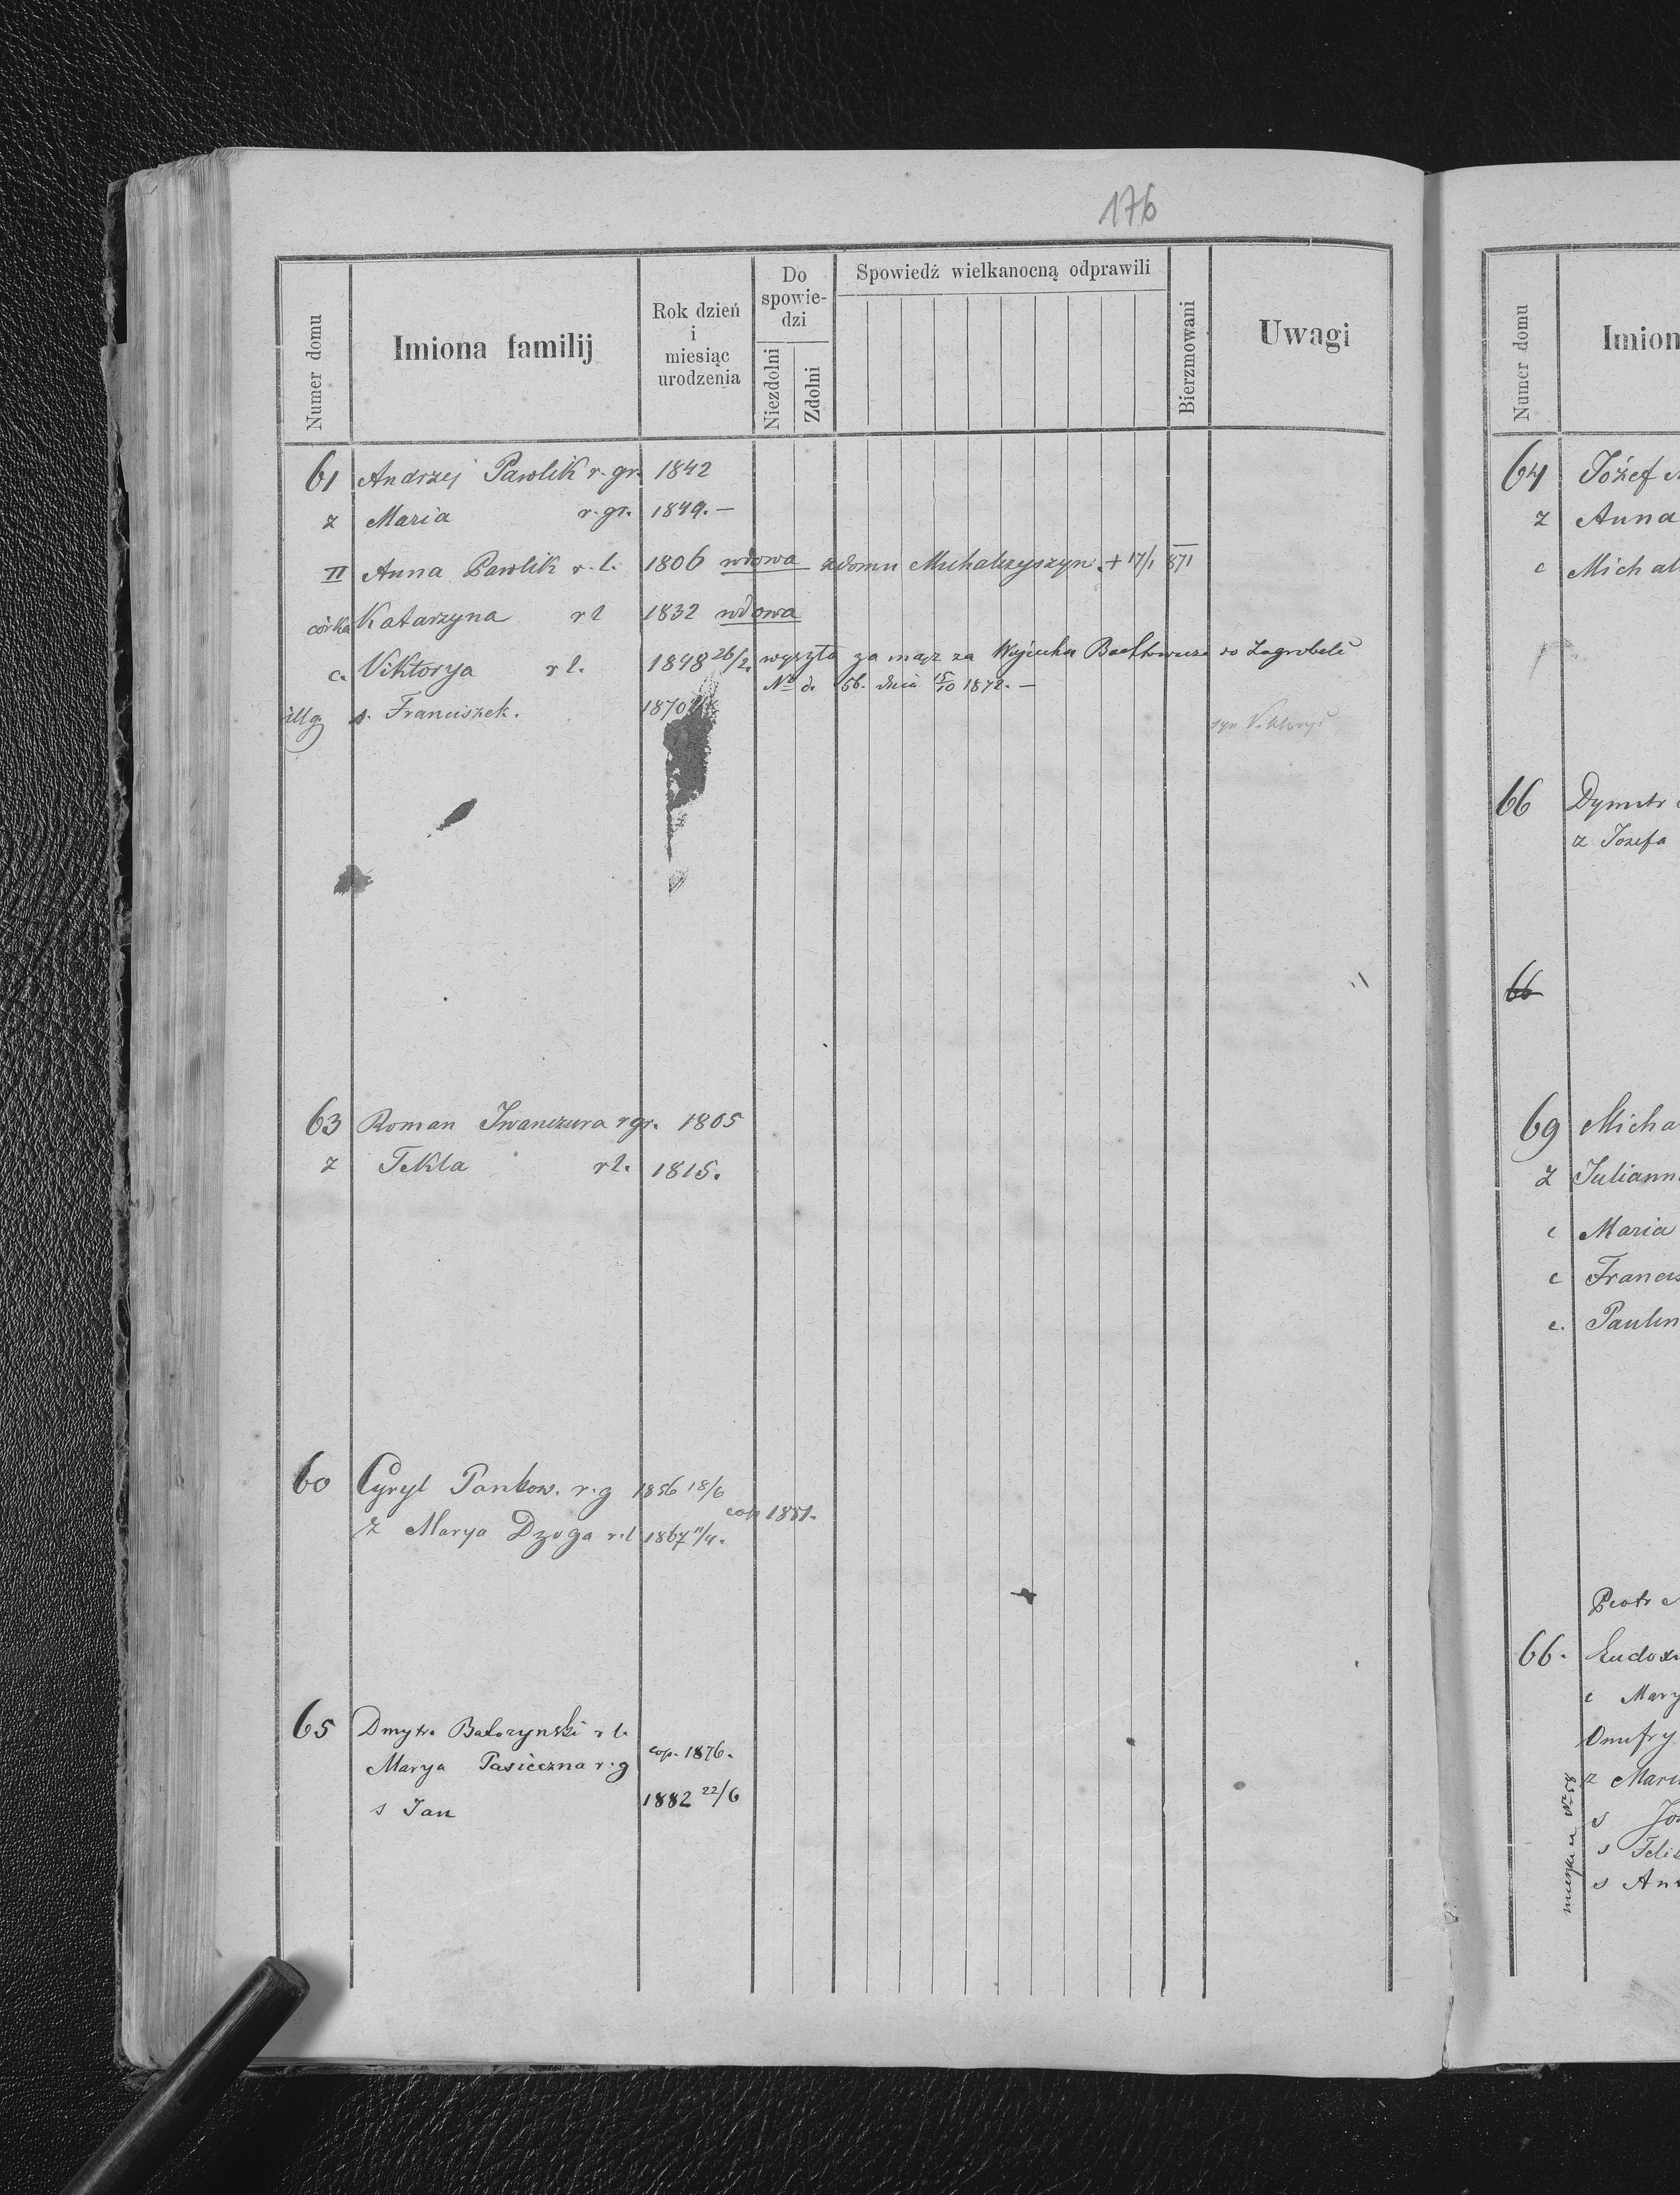 176
Numer domu
Imiona familij
Rok dzień
i
miesiąc
urodzenia
Do
spowie-
dzi
Niezdolni
Zdolni
Spowiedź wielkanocną odprawili
Bierzmowani
Uwagi
61 Andrzej Pawlik r. gr. 1842
z Maria r. gr. 1849. —
II Anna Pawlik r. l. 1806 wdowa z domu Michalczyszyn. + 17/1 871
córka Katarzyna r l 1832 wdowa
c. Viktorya r l. 1848 26/2. wyszła za mąż za do Zagrobeli
No d. 56. dnia 15/10 1872. —
illg s. Franciszek. 1870 syn Viktoryi
63 Roman Iwanczura r gr. 1805
z Tekla r l. 1815.
60 Cyryl Pankow. r. g 1856 18/6
cop 1881.
z Marya Dzoga r. l 1867 11/4.
65 Dmytro Batozynski r l.
Marya Pasieczna r. g cop. 1876.
s Jan 1882 22/6
Numer domu
Imion
64 Józef
z Anna
c Michal
66 Dymitr
z Josefa
66
69 Micha
z Juliann
c Maria
c Francis
c. Paulin
Piotr
66. Eudox
c Mary
Onufry
z Mari
s Jo
s Feli
s An
No 58